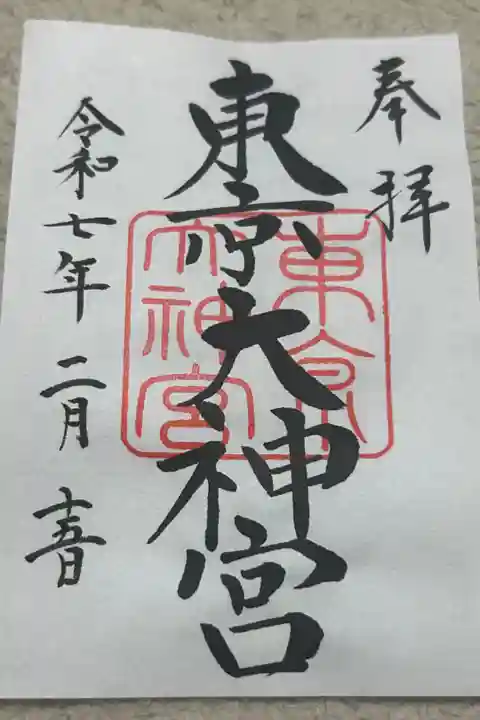 奉拝
東京大神宮
東京大神宮
令和七年 二月 十五日